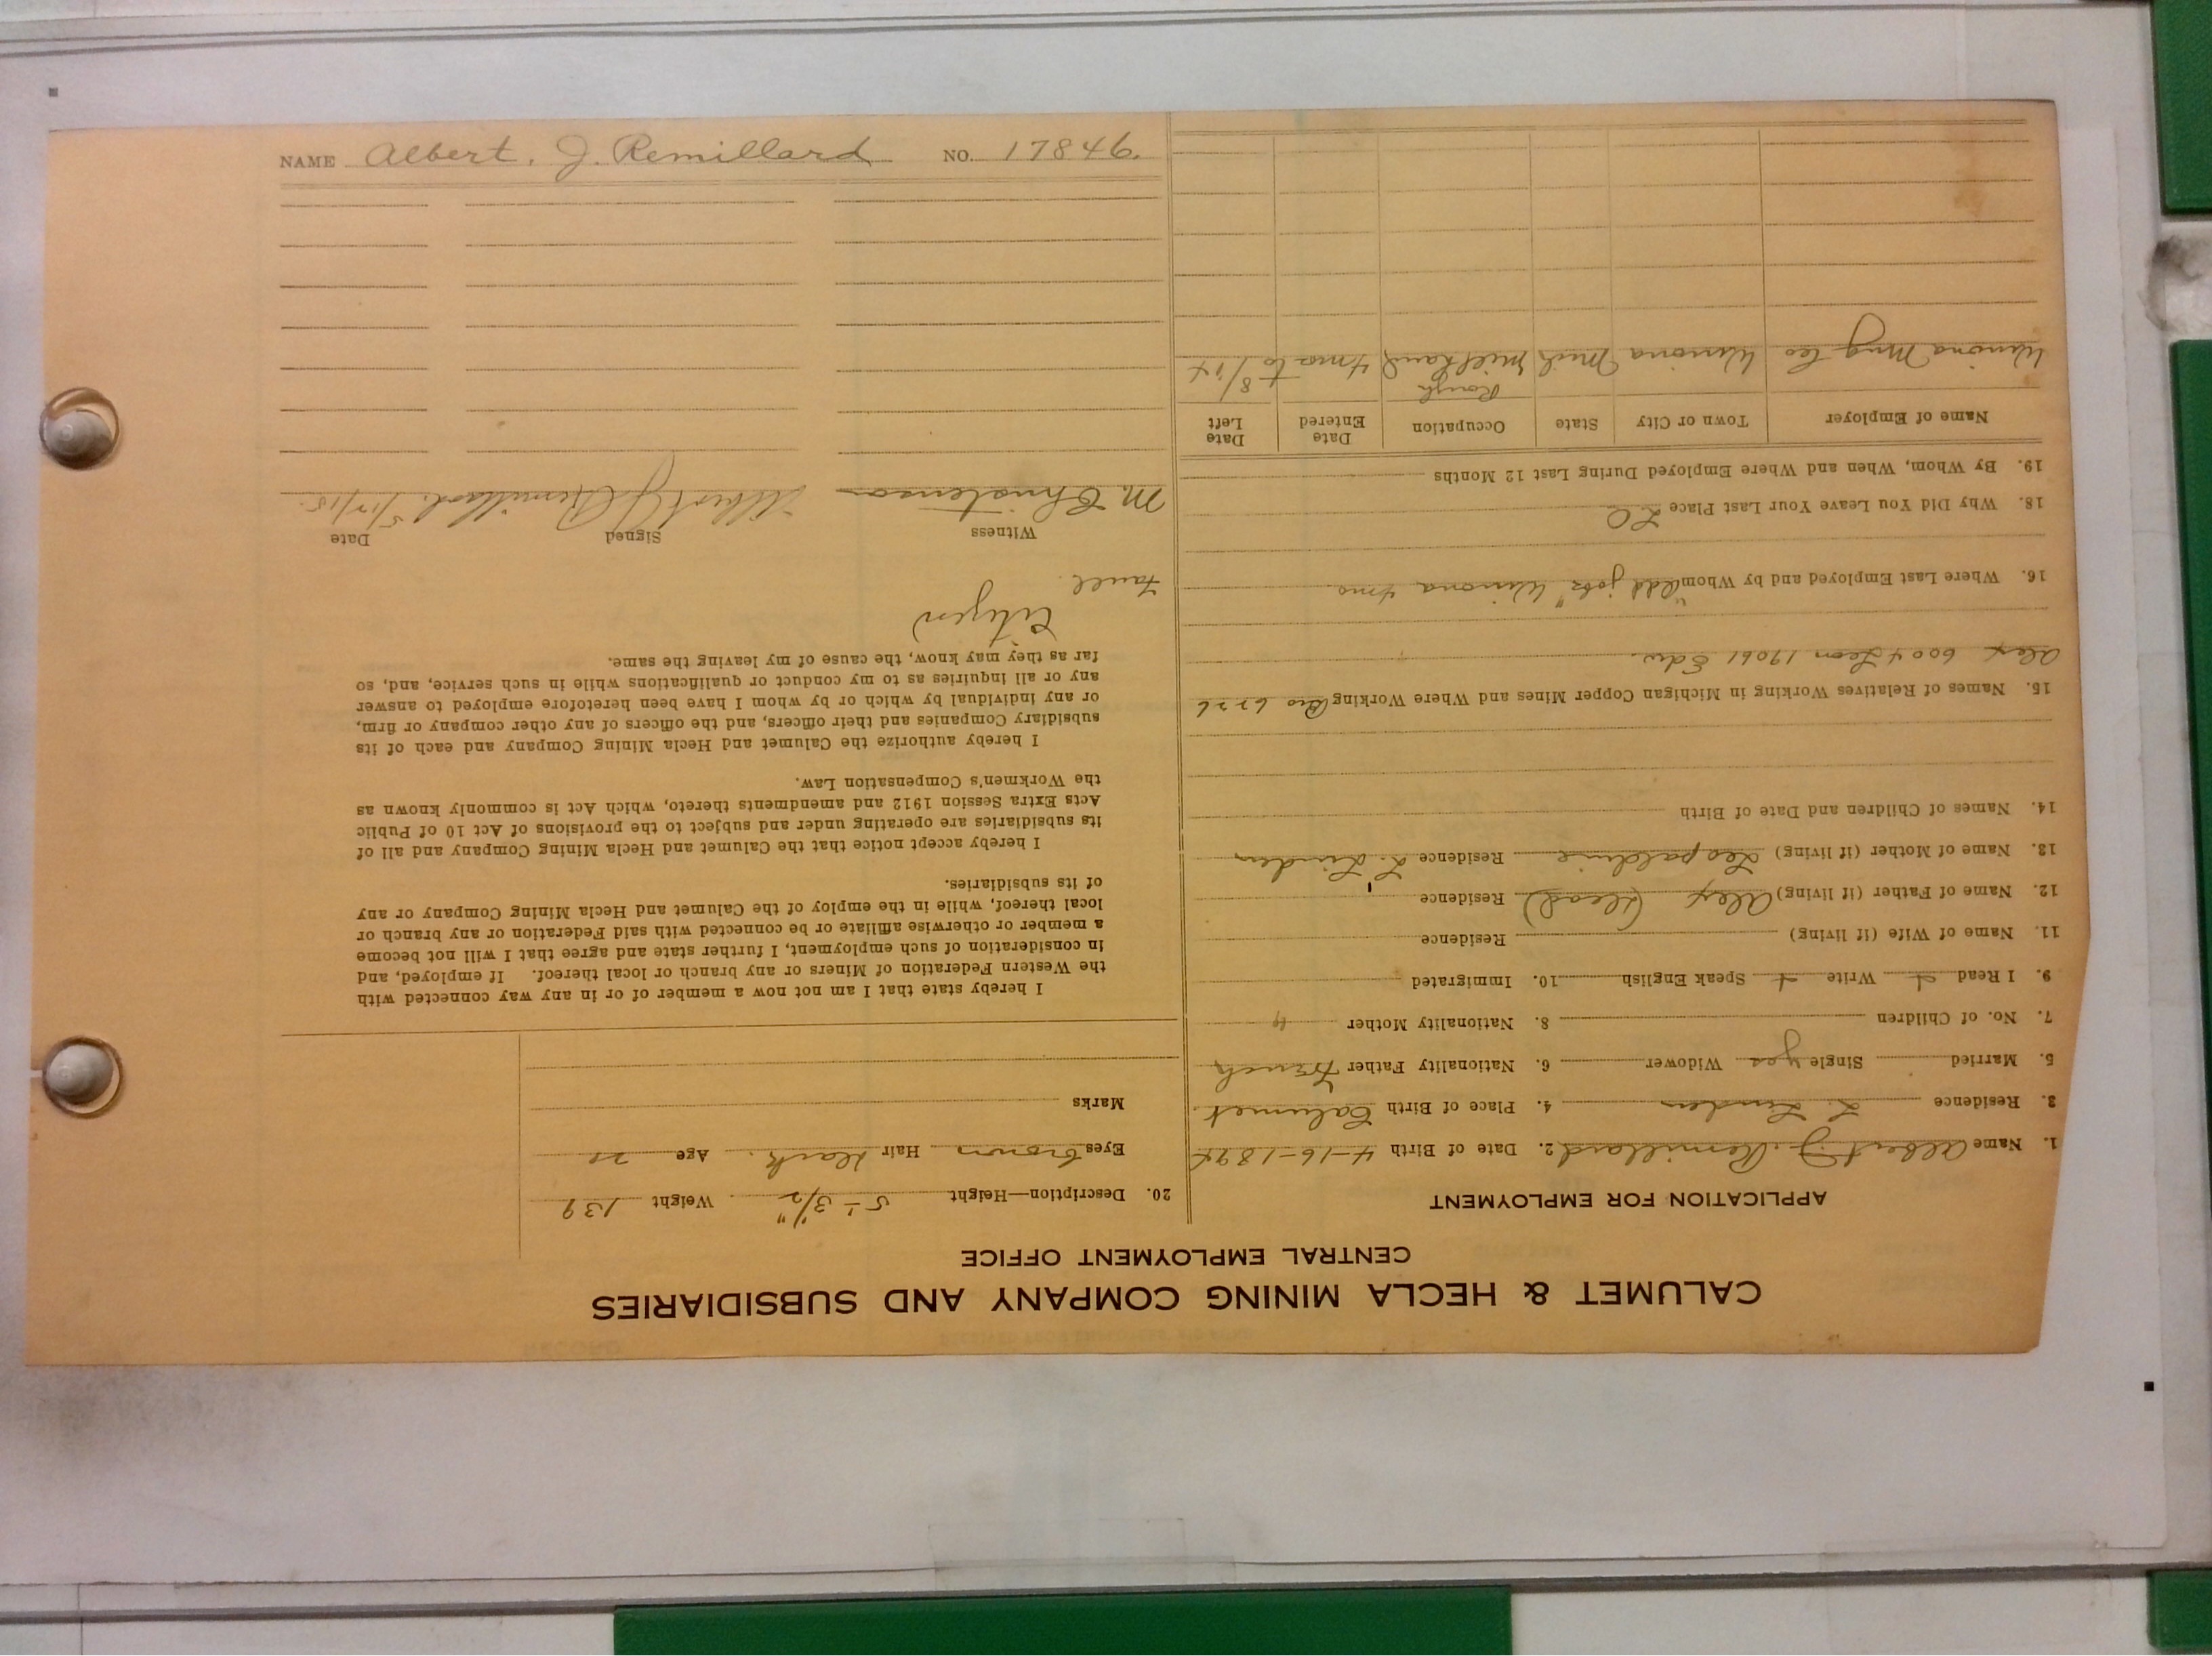 NAME Albert. J. Remillard NO. 17846.
CALUMET & HECLA MINING COMPANY AND SUBSIDIARIES
CENTRAL EMPLOYMENT OFFICE
APPLICATION FOR EMPLOYMENT
1. Name Albert J. Remillard 2. Date of Birth 4-16-1894
3. Residence L. Linden 4. Place of Birth Calumet
5. Married Single yes Widower 6. Nationality Father French
7. No. of Children 8. Nationality Mother "
9. I Read Write Speak English 10. Immigrated
11. Name of Wife (if living) Residence
12. Name of Father (if living) Alex (dead) Residence
13. Name of Mother (if living) Leopaldine Residence L. Linden
14. Names of Children and Date of Birth
15. Names of Relatives Working in Michigan Copper Mines and Where Working Bro 6226
Alex 6004 Leon 17061 Edw.
16. Where Last Employed and by Whom "Odd jobs" Winona 4 mo.
18. Why Did You Leave Your Last Place LO
19. By Whom, When and Where Employed During Last 12 Months
Name of Employer Town or City State Occupation Date Entered Date Left
Winona Mng Co Winona Mich Rough Mill hand 4 mos to 8/14
20. Description—Height 5-3 1/2" Weight 139
Eyes brown Hair dark. Age
Marks
I hereby state that I am not now a member of or in any way connected with
the Western Federation of Miners or any branch or local thereof. If employed, and
in consideration of such employment, I further state and agree that I will not become
a member or otherwise affiliate or be connected with said Federation or any branch or
local thereof, while in the employ of the Calumet and Hecla Mining Company or any
of its subsidiaries.
I hereby accept notice that the Calumet and Hecla Mining Company and all of
its subsidiaries are operating under and subject to the provisions of Act 10 of Public
Acts Extra Session 1912 and amendments thereto, which Act is commonly known as
the Workmen's Compensation Law.
I hereby authorize the Calumet and Hecla Mining Company and each of its
subsidiary Companies and their officers, and the officers of any other company or firm,
or any individual by which or by whom I have been heretofore employed to answer
any or all inquiries as to my conduct or qualifications while in such service, and, so
far as they may know, the cause of my leaving the same.
Citizen
Witness Signed Date
M. Christenson Albert J Remillard. 5/17/15.